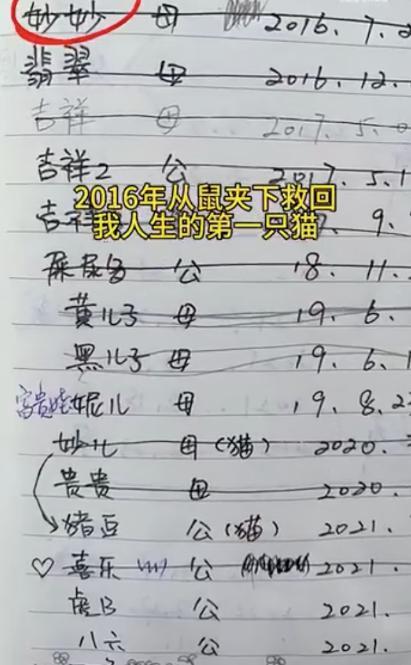 妙妙 母 2016.7.2
翡翠 母 2016.12.
吉祥 母 2017.5.0
吉祥2 公 2017.5.1
2016年从鼠夹下救回
吉祥 9.
我人生的第一只猫
屎尿多 公 18.11.
黄儿子 母 19.6.
黑儿子 母 19.6.1
富贵 妮儿 母 19.8.2
妙儿 母(猫) 2020.
贵贵 母 2020.
猪豆 公(猫) 2021.
♡ 喜乐 公 2021.
虎B 公 2021.
八六 公 2021.